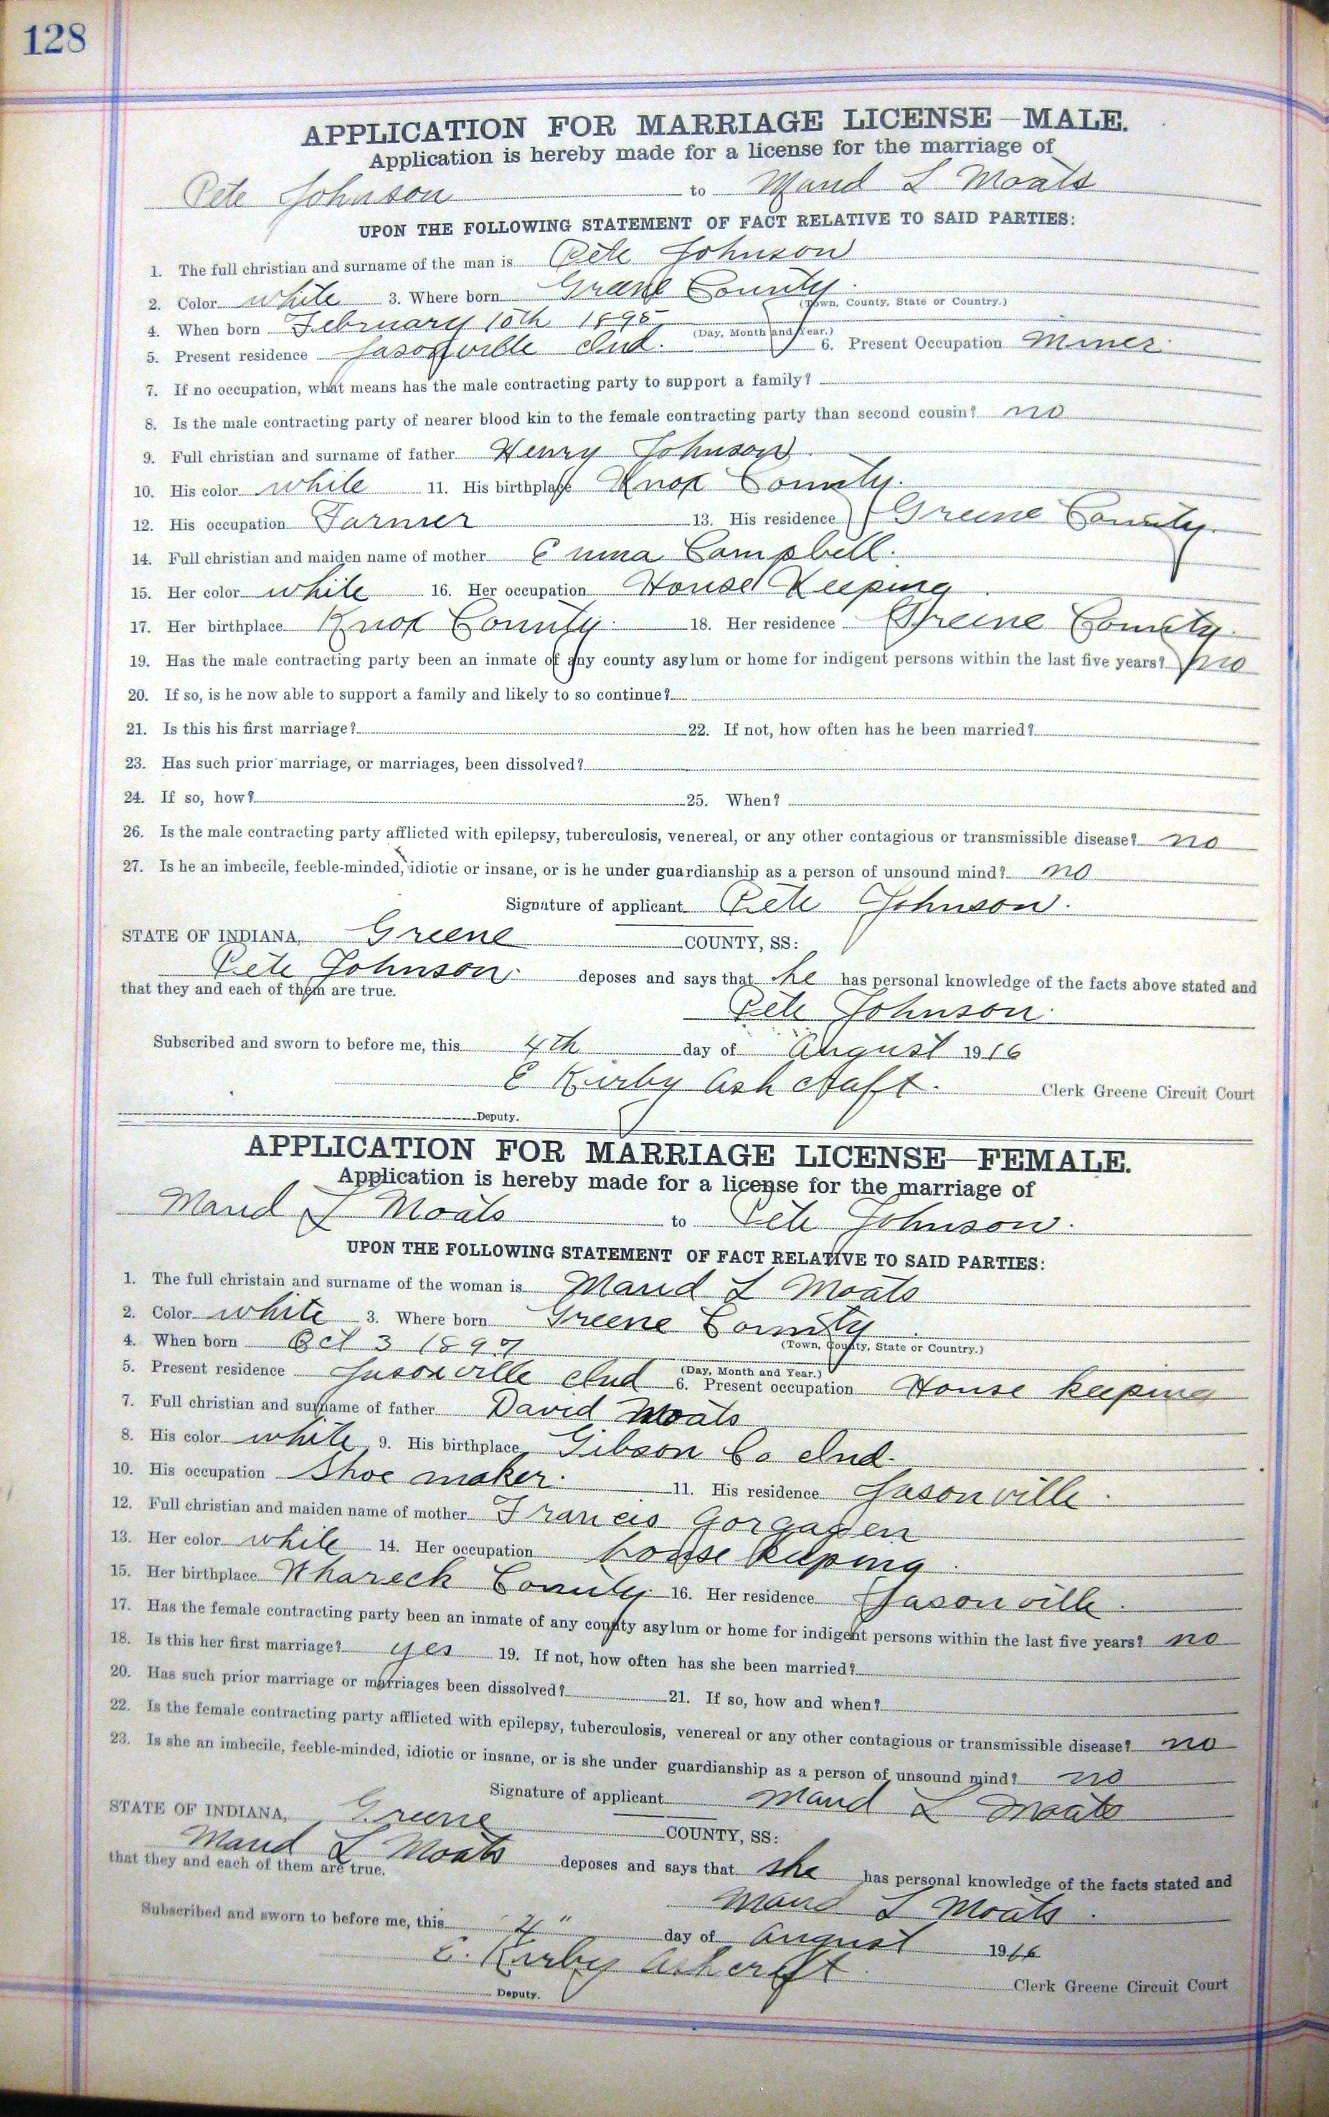 128
APPLICATION FOR MARRIAGE LICENSE—MALE.
Application is hereby made for a license for the marriage of
Pete Johnson to Maud L Moats
UPON THE FOLLOWING STATEMENT OF FACT RELATIVE TO SAID PARTIES:
1. The full christian and surname of the man is Pete Johnson
2. Color white 3. Where born Greene County
(Town, County, State or Country.)
4. When born February 10th 1895
(Day, Month and Year.)
5. Present residence Jasonville Ind. 6. Present Occupation Miner
7. If no occupation, what means has the male contracting party to support a family?
8. Is the male contracting party of nearer blood kin to the female contracting party than second cousin? no
9. Full christian and surname of father Henry Johnson
10. His color white 11. His birthplace Knox County.
12. His occupation Farmer 13. His residence Greene County.
14. Full christian and maiden name of mother Emma Campbell.
15. Her color white 16. Her occupation House Keeping
17. Her birthplace Knox County. 18. Her residence Greene County.
19. Has the male contracting party been an inmate of any county asylum or home for indigent persons within the last five years? no
20. If so, is he now able to support a family and likely to so continue?
21. Is this his first marriage? 22. If not, how often has he been married?
23. Has such prior marriage, or marriages, been dissolved?
24. If so, how? 25. When?
26. Is the male contracting party afflicted with epilepsy, tuberculosis, venereal, or any other contagious or transmissible disease? no
27. Is he an imbecile, feeble-minded, idiotic or insane, or is he under guardianship as a person of unsound mind? no
Signature of applicant Pete Johnson.
STATE OF INDIANA, Greene COUNTY, SS:
Pete Johnson. deposes and says that he has personal knowledge of the facts above stated and
that they and each of them are true.
Pete Johnson.
Subscribed and sworn to before me, this 4th day of August 1916
E Kirby Ashcraft. Clerk Greene Circuit Court
Deputy.
APPLICATION FOR MARRIAGE LICENSE—FEMALE.
Application is hereby made for a license for the marriage of
Maud L Moats to Pete Johnson.
UPON THE FOLLOWING STATEMENT OF FACT RELATIVE TO SAID PARTIES:
1. The full christain and surname of the woman is Maud L Moats
2. Color white 3. Where born Greene County
(Town, County, State or Country.)
4. When born Oct 3 1897
(Day, Month and Year.)
5. Present residence Jasonville Ind 6. Present occupation House keeping
7. Full christian and surname of father David Moats
8. His color white 9. His birthplace Gibson Co Ind.
10. His occupation Shoe maker. 11. His residence Jasonville.
12. Full christian and maiden name of mother Francis Gorgagen
13. Her color white 14. Her occupation house keeping.
15. Her birthplace Whareck County. 16. Her residence Jasonville.
17. Has the female contracting party been an inmate of any county asylum or home for indigent persons within the last five years? no
18. Is this her first marriage? yes 19. If not, how often has she been married?
20. Has such prior marriage or marriages been dissolved? 21. If so, how and when?
22. Is the female contracting party afflicted with epilepsy, tuberculosis, venereal or any other contagious or transmissible disease? no
23. Is she an imbecile, feeble-minded, idiotic or insane, or is she under guardianship as a person of unsound mind? no
Signature of applicant Maud L Moats
STATE OF INDIANA, Greene COUNTY, SS:
Maud L Moats deposes and says that she has personal knowledge of the facts stated and
that they and each of them are true.
Maud L Moats.
Subscribed and sworn to before me, this 4" day of August 1916
E. Kirby Ashcraft Clerk Greene Circuit Court
Deputy.